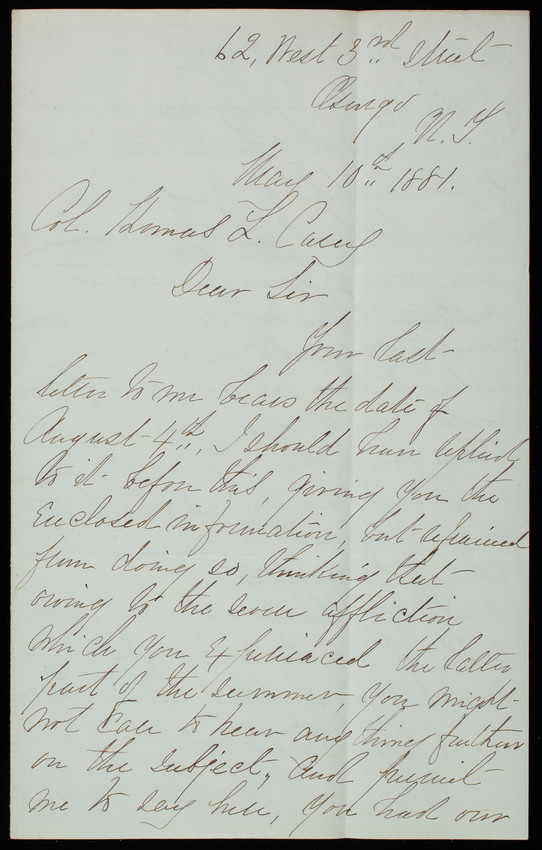 62, West 3rd Street
Oswego
N. Y.
May 10th 1881.
Col. Thomas L. Casey
Dear Sir
Your last
letter to me bears the date of
August 4th, I should have replied
to it before this, giving you the
enclosed information, but refrained
from doing so, thinking that
owing to the severe affliction
which you experienced the latter
part of the summer, you might
not care to hear any thing further
on the subject, and permit
me to say here, you had our